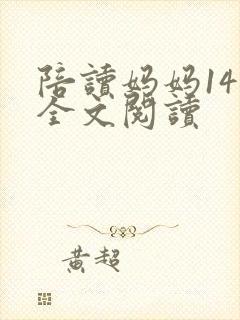 陪讀妈妈14
全文閱讀
黄超